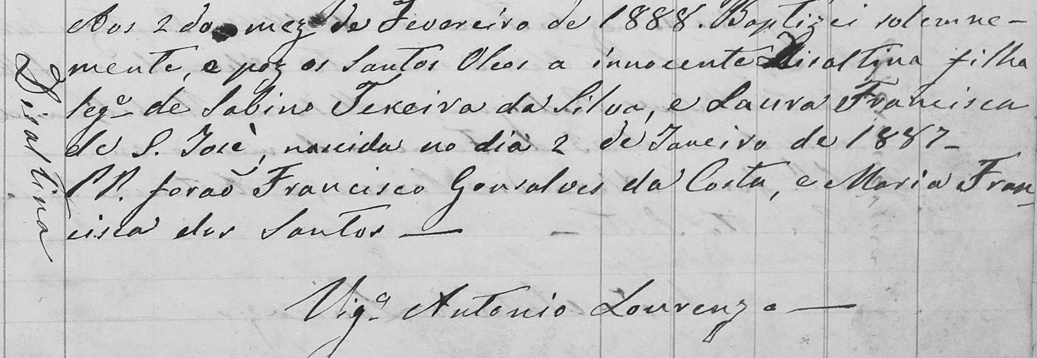 Aos 2 do mez de Fevereiro de 1888. Baptizei solemne-
mente, e poz os Santos Oleos a innocente Disaltina filha
legª de Sabino Texeira da Silva, e Laura Francisca
de S. Josè, nascida no dia 2 de Janeiro de 1887-
PP. forão Francisco Gonsalves da Costa, e Maria Fran-
cisca dos Santos —
Vigº Antonio Lourenzo —
Disaltina